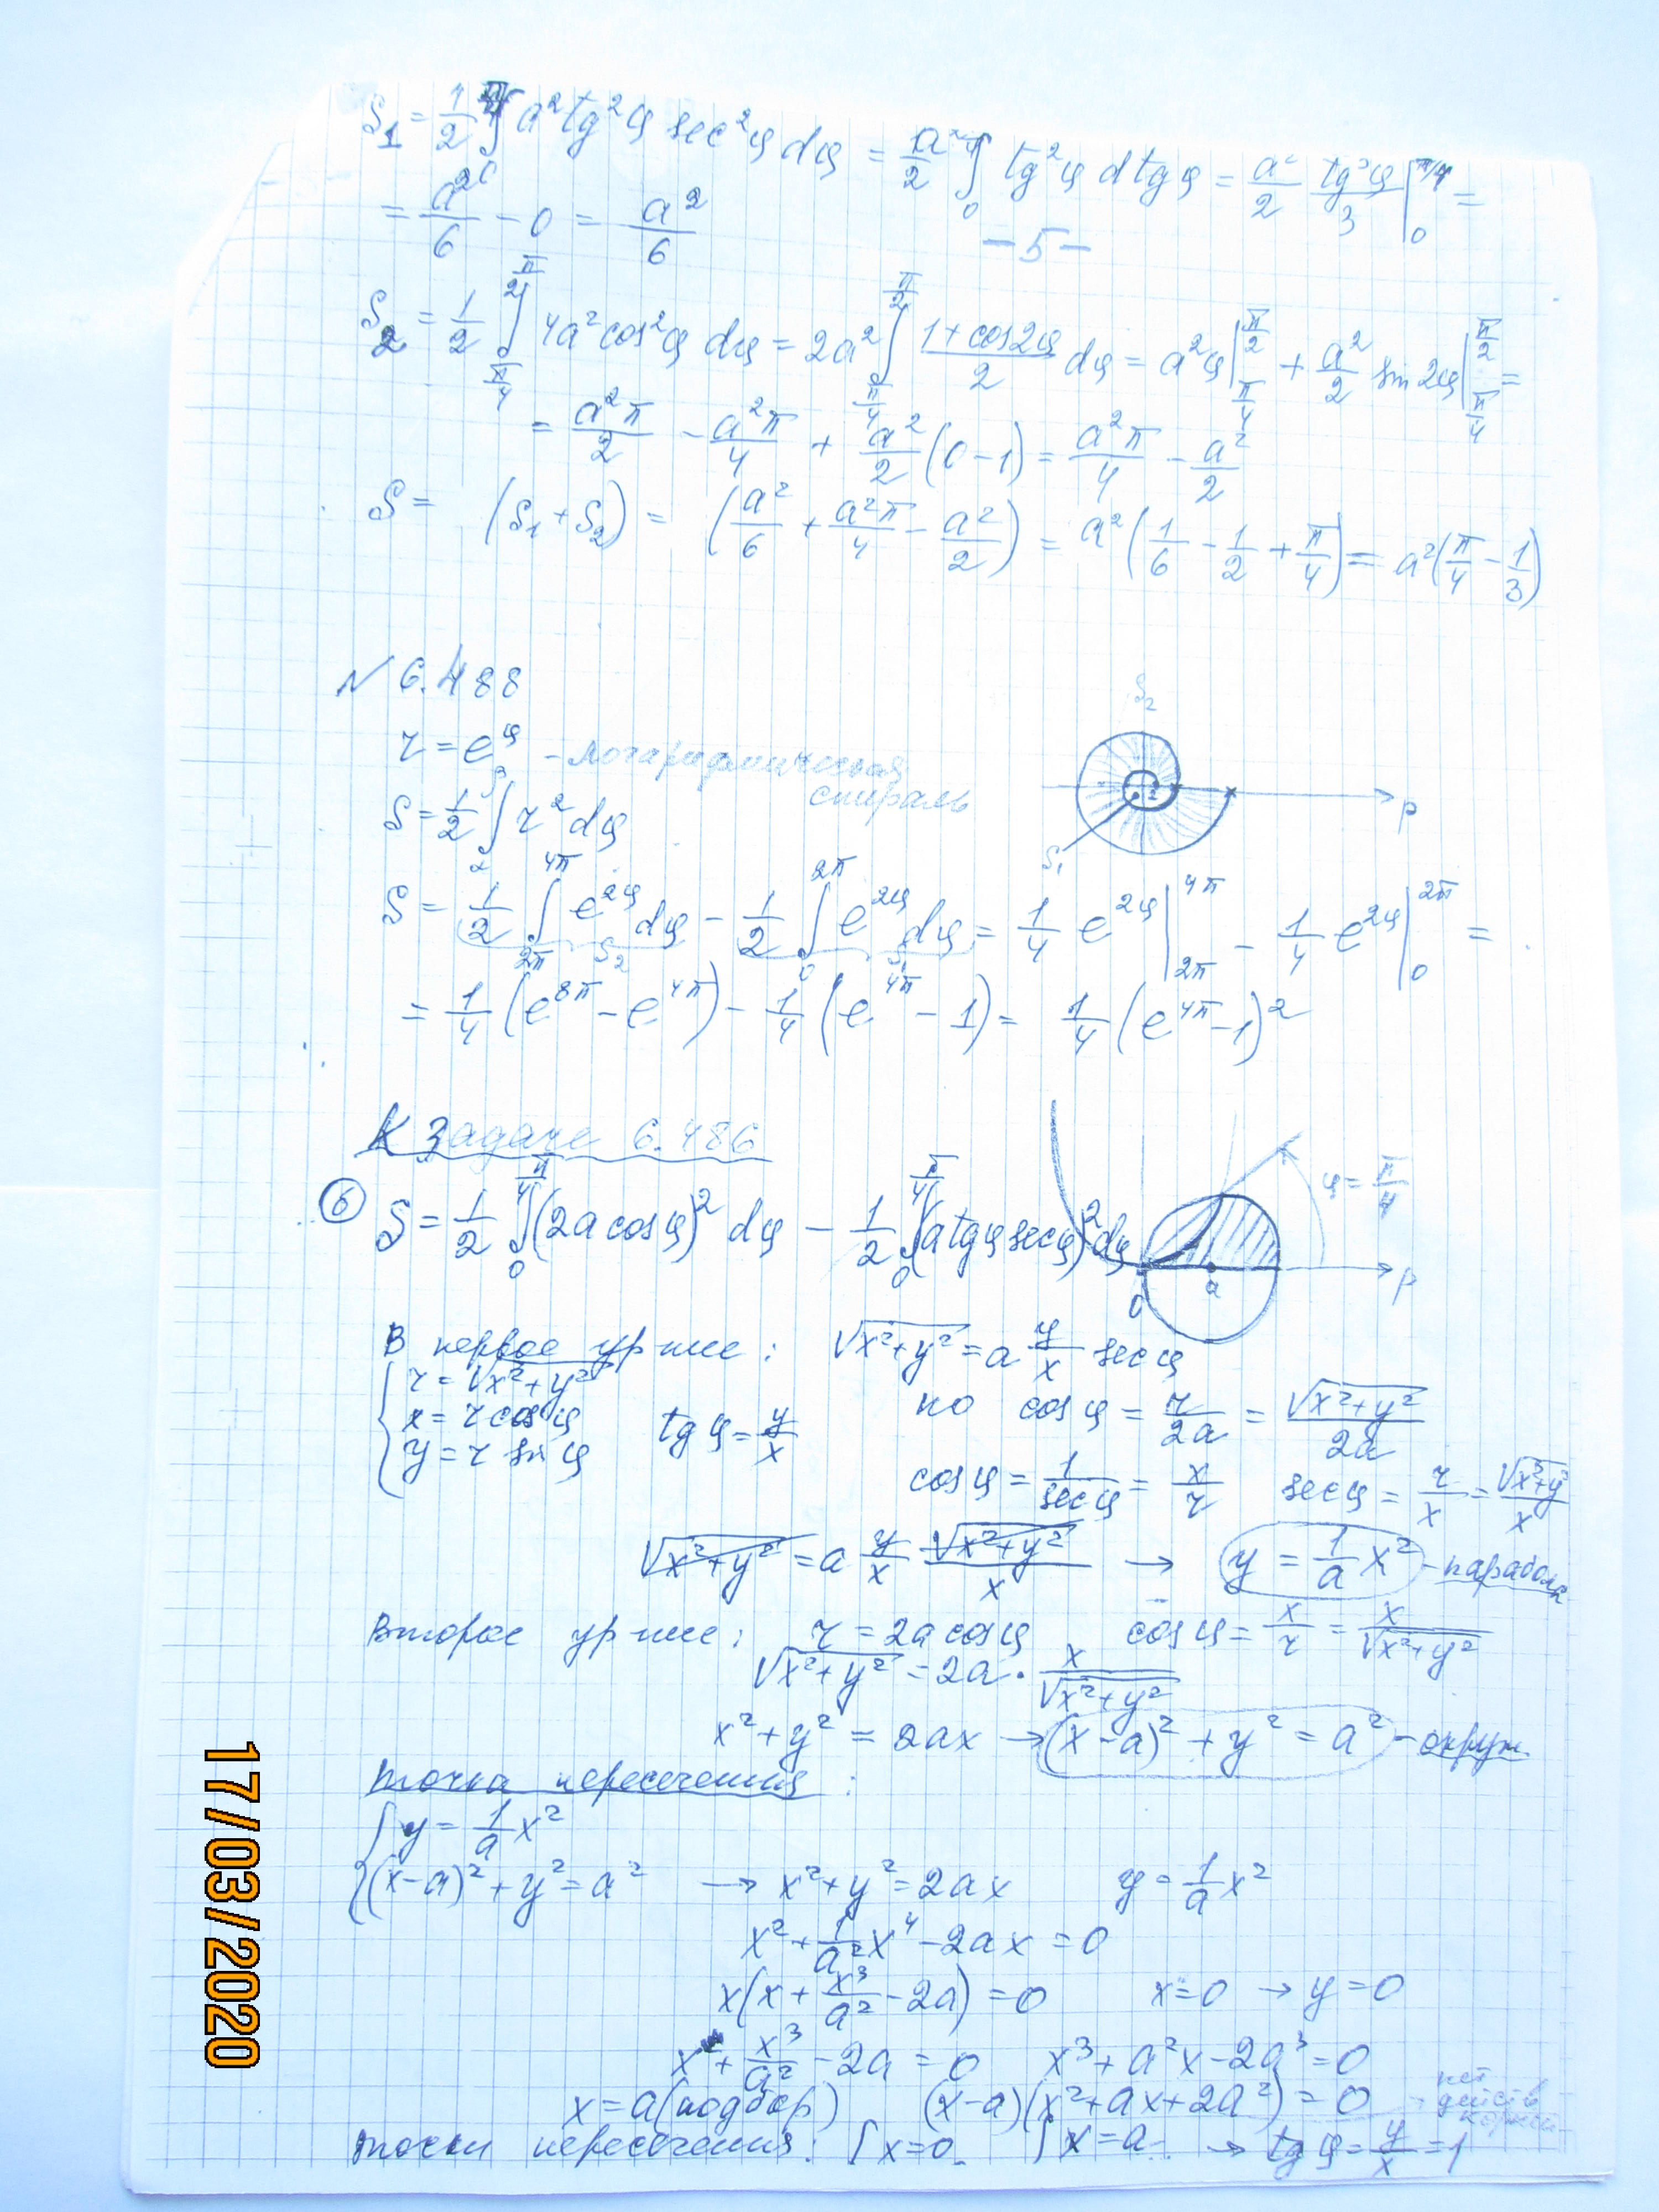 S₁ = 1/2 ∫₀^{π/4} a² tg²φ sec²φ dφ = a²/2 ∫₀ tg²φ d tgφ = a²/2 tg³φ/3 |₀^{π/4} =
= a²/6 − 0 = a²/6
− 5 −
S₂ = 1/2 ∫_{π/4}^{π/2} 4a² cos²φ dφ = 2a² ∫_{π/4}^{π/2} (1 + cos2φ)/2 dφ = a²φ |_{π/4}^{π/2} + a²/2 sin 2φ |_{π/4}^{π/2} =
= a²π/2 − a²π/4 + a²/2 (0 − 1) = a²π/4 − a²/2
S = (S₁ + S₂) = (a²/6 + a²π/4 − a²/2) = a²(1/6 − 1/2 + π/4) = a²(π/4 − 1/3)
N 6.488
S₂
r = e^φ – логарифмическая
спираль
S = 1/2 ∫ r² dφ
p
S₁
S = 1/2 ∫_{2π}^{4π} e^{2φ} dφ − 1/2 ∫₀^{2π} e^{2φ} dφ = 1/4 e^{2φ} |_{2π}^{4π} − 1/4 e^{2φ} |₀^{2π} =
S₂ S₁
= 1/4 (e^{8π} − e^{4π}) − 1/4 (e^{4π} − 1) = 1/4 (e^{4π} − 1)²
К задаче 6.486
φ = π/4
S = 1/2 ∫₀^{π/4} (2a cosφ)² dφ − 1/2 ∫₀^{π/4} (a tgφ secφ)² dφ
0 a p
В первое ур-ние: √(x²+y²) = a y/x secφ
{ r = √(x²+y²)
x = r cosφ tgφ = y/x но cosφ = r/2a = √(x²+y²)/2a
y = r sinφ
cosφ = 1/secφ = x/r secφ = r/x = √(x²+y²)/x
√(x²+y²) = a y/x √(x²+y²)/x → y = 1/a x² – парабола
Второе ур-ние: r = 2a cosφ cosφ = x/r = x/√(x²+y²)
√(x²+y²) = 2a · x/√(x²+y²)
x² + y² = 2ax → (x−a)² + y² = a² – окруж.
Точка пересечения:
{ y = 1/a x²
(x−a)² + y² = a² → x² + y² = 2ax y = 1/a x²
x² + 1/a² x⁴ − 2ax = 0
x(x + x³/a² − 2a) = 0 x = 0 → y = 0
x + x³/a² − 2a = 0 x³ + a²x − 2a³ = 0
x = a (подбор) (x−a)(x² + ax + 2a²) = 0 – нет
действ
корней
точки пересечения: { x = 0 { x = a → tgφ = y/x = 1
17/03/2020